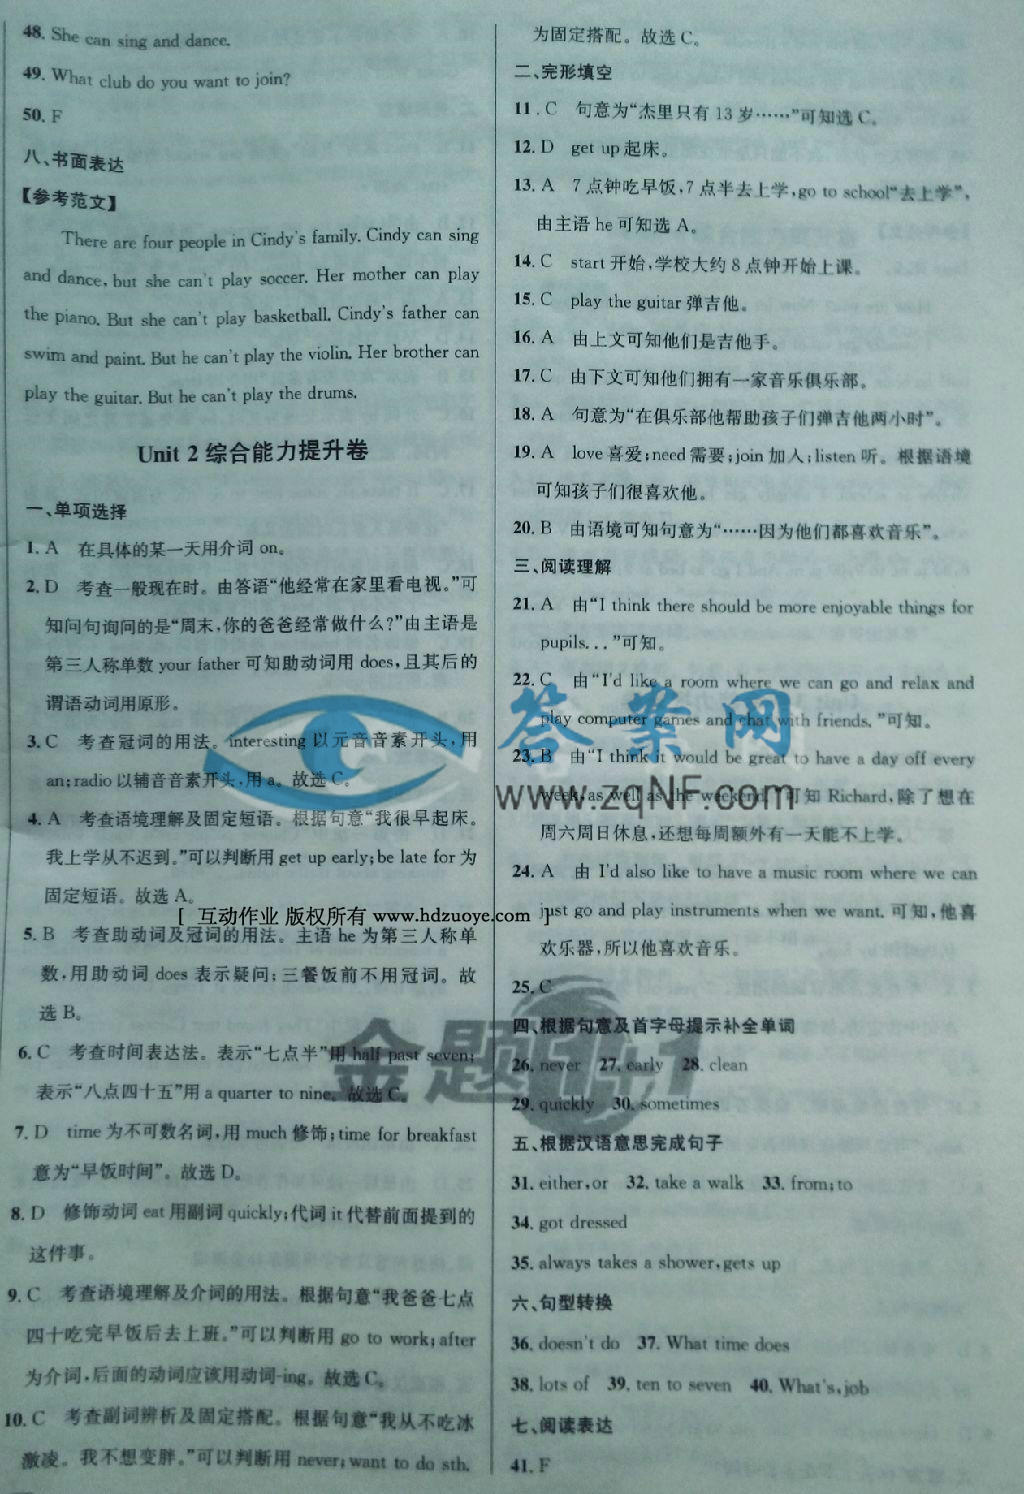 48. She can sing and dance.
49. What club do you want to join?
50. F
八、书面表达
【参考范文】
There are four people in Cindy's family. Cindy can sing
and dance, but she can't play soccer. Her mother can play
the piano. But she can't play basketball. Cindy's father can
swim and paint. But he can't play the violin. Her brother can
play the guitar. But he can't play the drums.
Unit 2 综合能力提升卷
一、单项选择
1. A 在具体的某一天用介词 on。
2. D 考查一般现在时。由答语“他经常在家里看电视。”可
知问句询问的是“周末,你的爸爸经常做什么?”由主语是
第三人称单数 your father 可知助动词用 does,且其后的
谓语动词用原形。
3. C 考查冠词的用法。interesting 以元音音素开头,用
an;radio 以辅音音素开头,用 a。故选 C。
4. A 考查语境理解及固定短语。根据句意“我很早起床。
我上学从不迟到。”可以判断用 get up early;be late for 为
固定短语。故选 A。
5. B 考查助动词及冠词的用法。主语 he 为第三人称单
数,用助动词 does 表示疑问;三餐饭前不用冠词。故
选 B。
6. C 考查时间表达法。表示“七点半”用 half past seven;
表示“八点四十五”用 a quarter to nine。故选 C。
7. D time 为不可数名词,用 much 修饰;time for breakfast
意为“早饭时间”。故选 D。
8. D 修饰动词 eat 用副词 quickly;代词 it 代替前面提到的
这件事。
9. C 考查语境理解及介词的用法。根据句意“我爸爸七点
四十吃完早饭后去上班。”可以判断用 go to work;after
为介词,后面的动词应该用动词-ing。故选 C。
10. C 考查副词辨析及固定搭配。根据句意“我从不吃冰
激凌。我不想变胖。”可以判断用 never;want to do sth.
为固定搭配。故选 C。
二、完形填空
11. C 句意为“杰里只有 13 岁……”可知选 C。
12. D get up 起床。
13. A 7 点钟吃早饭,7 点半去上学,go to school“去上学”,
由主语 he 可知选 A。
14. C start 开始,学校大约 8 点钟开始上课。
15. C play the guitar 弹吉他。
16. A 由上文可知他们是吉他手。
17. C 由下文可知他们拥有一家音乐俱乐部。
18. A 句意为“在俱乐部他帮助孩子们弹吉他两小时”。
19. A love 喜爱;need 需要;join 加入;listen 听。根据语境
可知孩子们很喜欢他。
20. B 由语境可知句意为“……因为他们都喜欢音乐”。
三、阅读理解
21. A 由“I think there should be more enjoyable things for
pupils...”可知。
22. C 由“I'd like a room where we can go and relax and
play computer games and chat with friends.”可知。
23. B 由“I think it would be great to have a day off every
week, as well as the weekend.”可知 Richard,除了想在
周六周日休息,还想每周额外有一天能不上学。
24. A 由 I'd also like to have a music room where we can
just go and play instruments when we want. 可知,他喜
欢乐器,所以他喜欢音乐。
25. C
四、根据句意及首字母提示补全单词
26. never 27. early 28. clean
29. quickly 30. sometimes
五、根据汉语意思完成句子
31. either,or 32. take a walk 33. from;to
34. got dressed
35. always takes a shower,gets up
六、句型转换
36. doesn't do 37. What time does
38. lots of 39. ten to seven 40. What's,job
七、阅读表达
41. F
答案网
www.zqNF.com
[ 互动作业 版权所有 www.hdzuoye.com ]
金题1+1